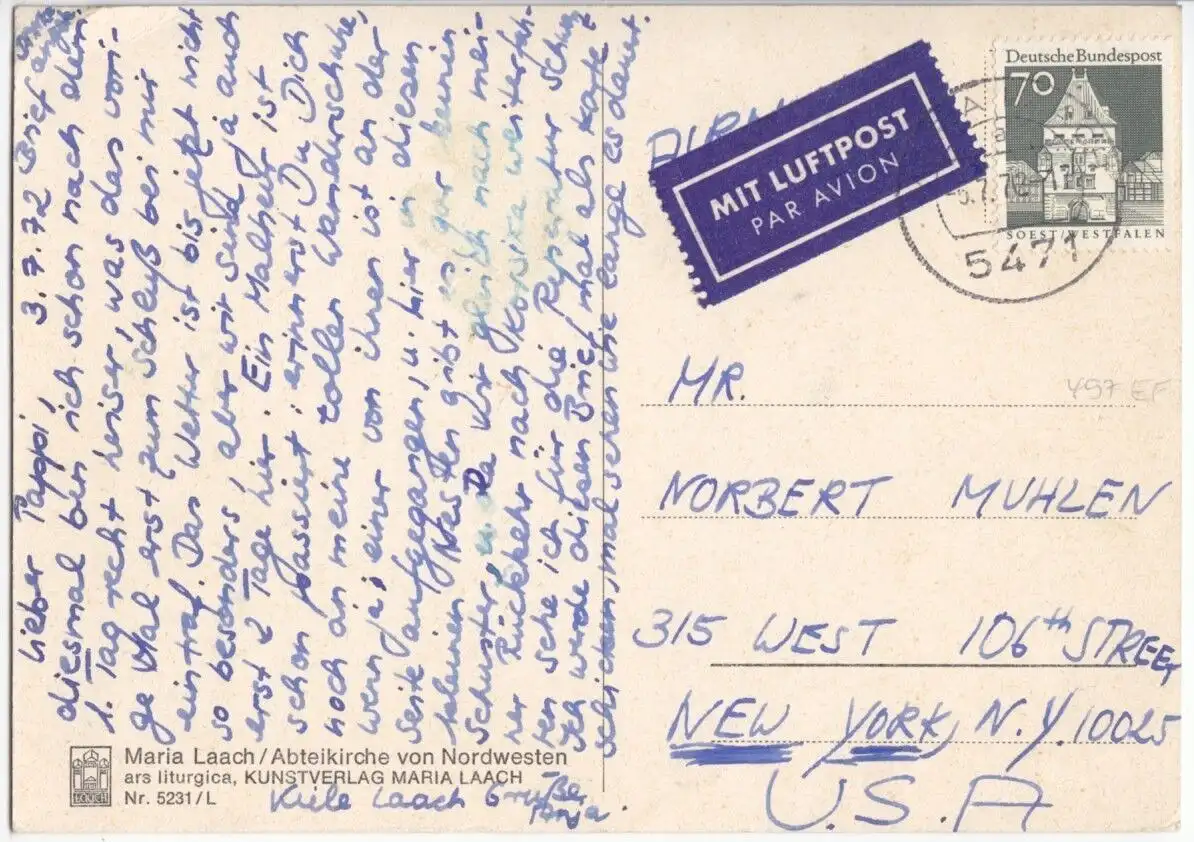 Lieber Pappi, 3.7.72 Brief
diesmal bin ich schon nach dem
1. Tag recht heiser, was das vori-
ge Mal erst zum Schluß bei mir
eintraf. Das Wetter ist bis jetzt nicht
so besonders, aber wir sind ja auch
erst 2 Tage hier. Ein Malheur ist
schon passiert: erinnerst Du Dich
noch an meine tollen Wanderschuhe,
wenn ja, einer von ihnen ist an der
Seite aufgegangen, u. hier in diesem
kleinen Nesten gibt es gar keinen
Schuster, u. Da wir gleich nach mei-
ner Rückkehr nach Korsika weiterfah-
ren sehe ich für die Reperatur schwarz
Ich werde diesen Brief mal als Karte
schicken, mal sehen wie lange es dauert.
Viele Laach Grüße
Tanja.
Maria Laach/Abteikirche von Nordwesten
ars liturgica, KUNSTVERLAG MARIA LAACH
Nr. 5231/L
MIT LUFTPOST
PAR AVION
Deutsche Bundespost
70
SOEST/WESTFALEN
5471
MR.
497 EF
NORBERT MUHLEN
315 WEST 106th STREET
NEW YORK, N.Y. 10025
U.S.A